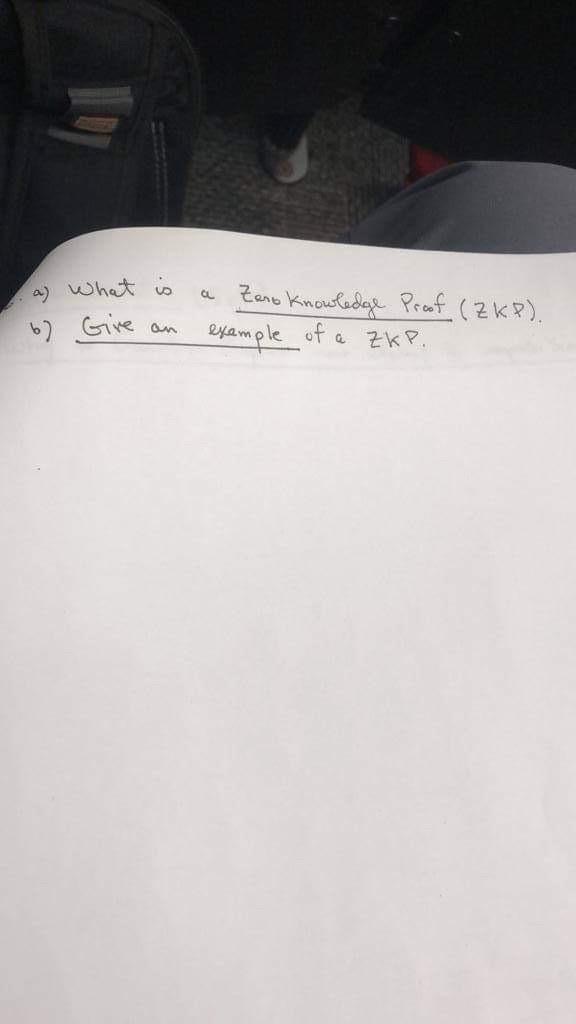 a) What is a Zero Knowledge Proof (ZKP).
b) Give an example of a ZKP.